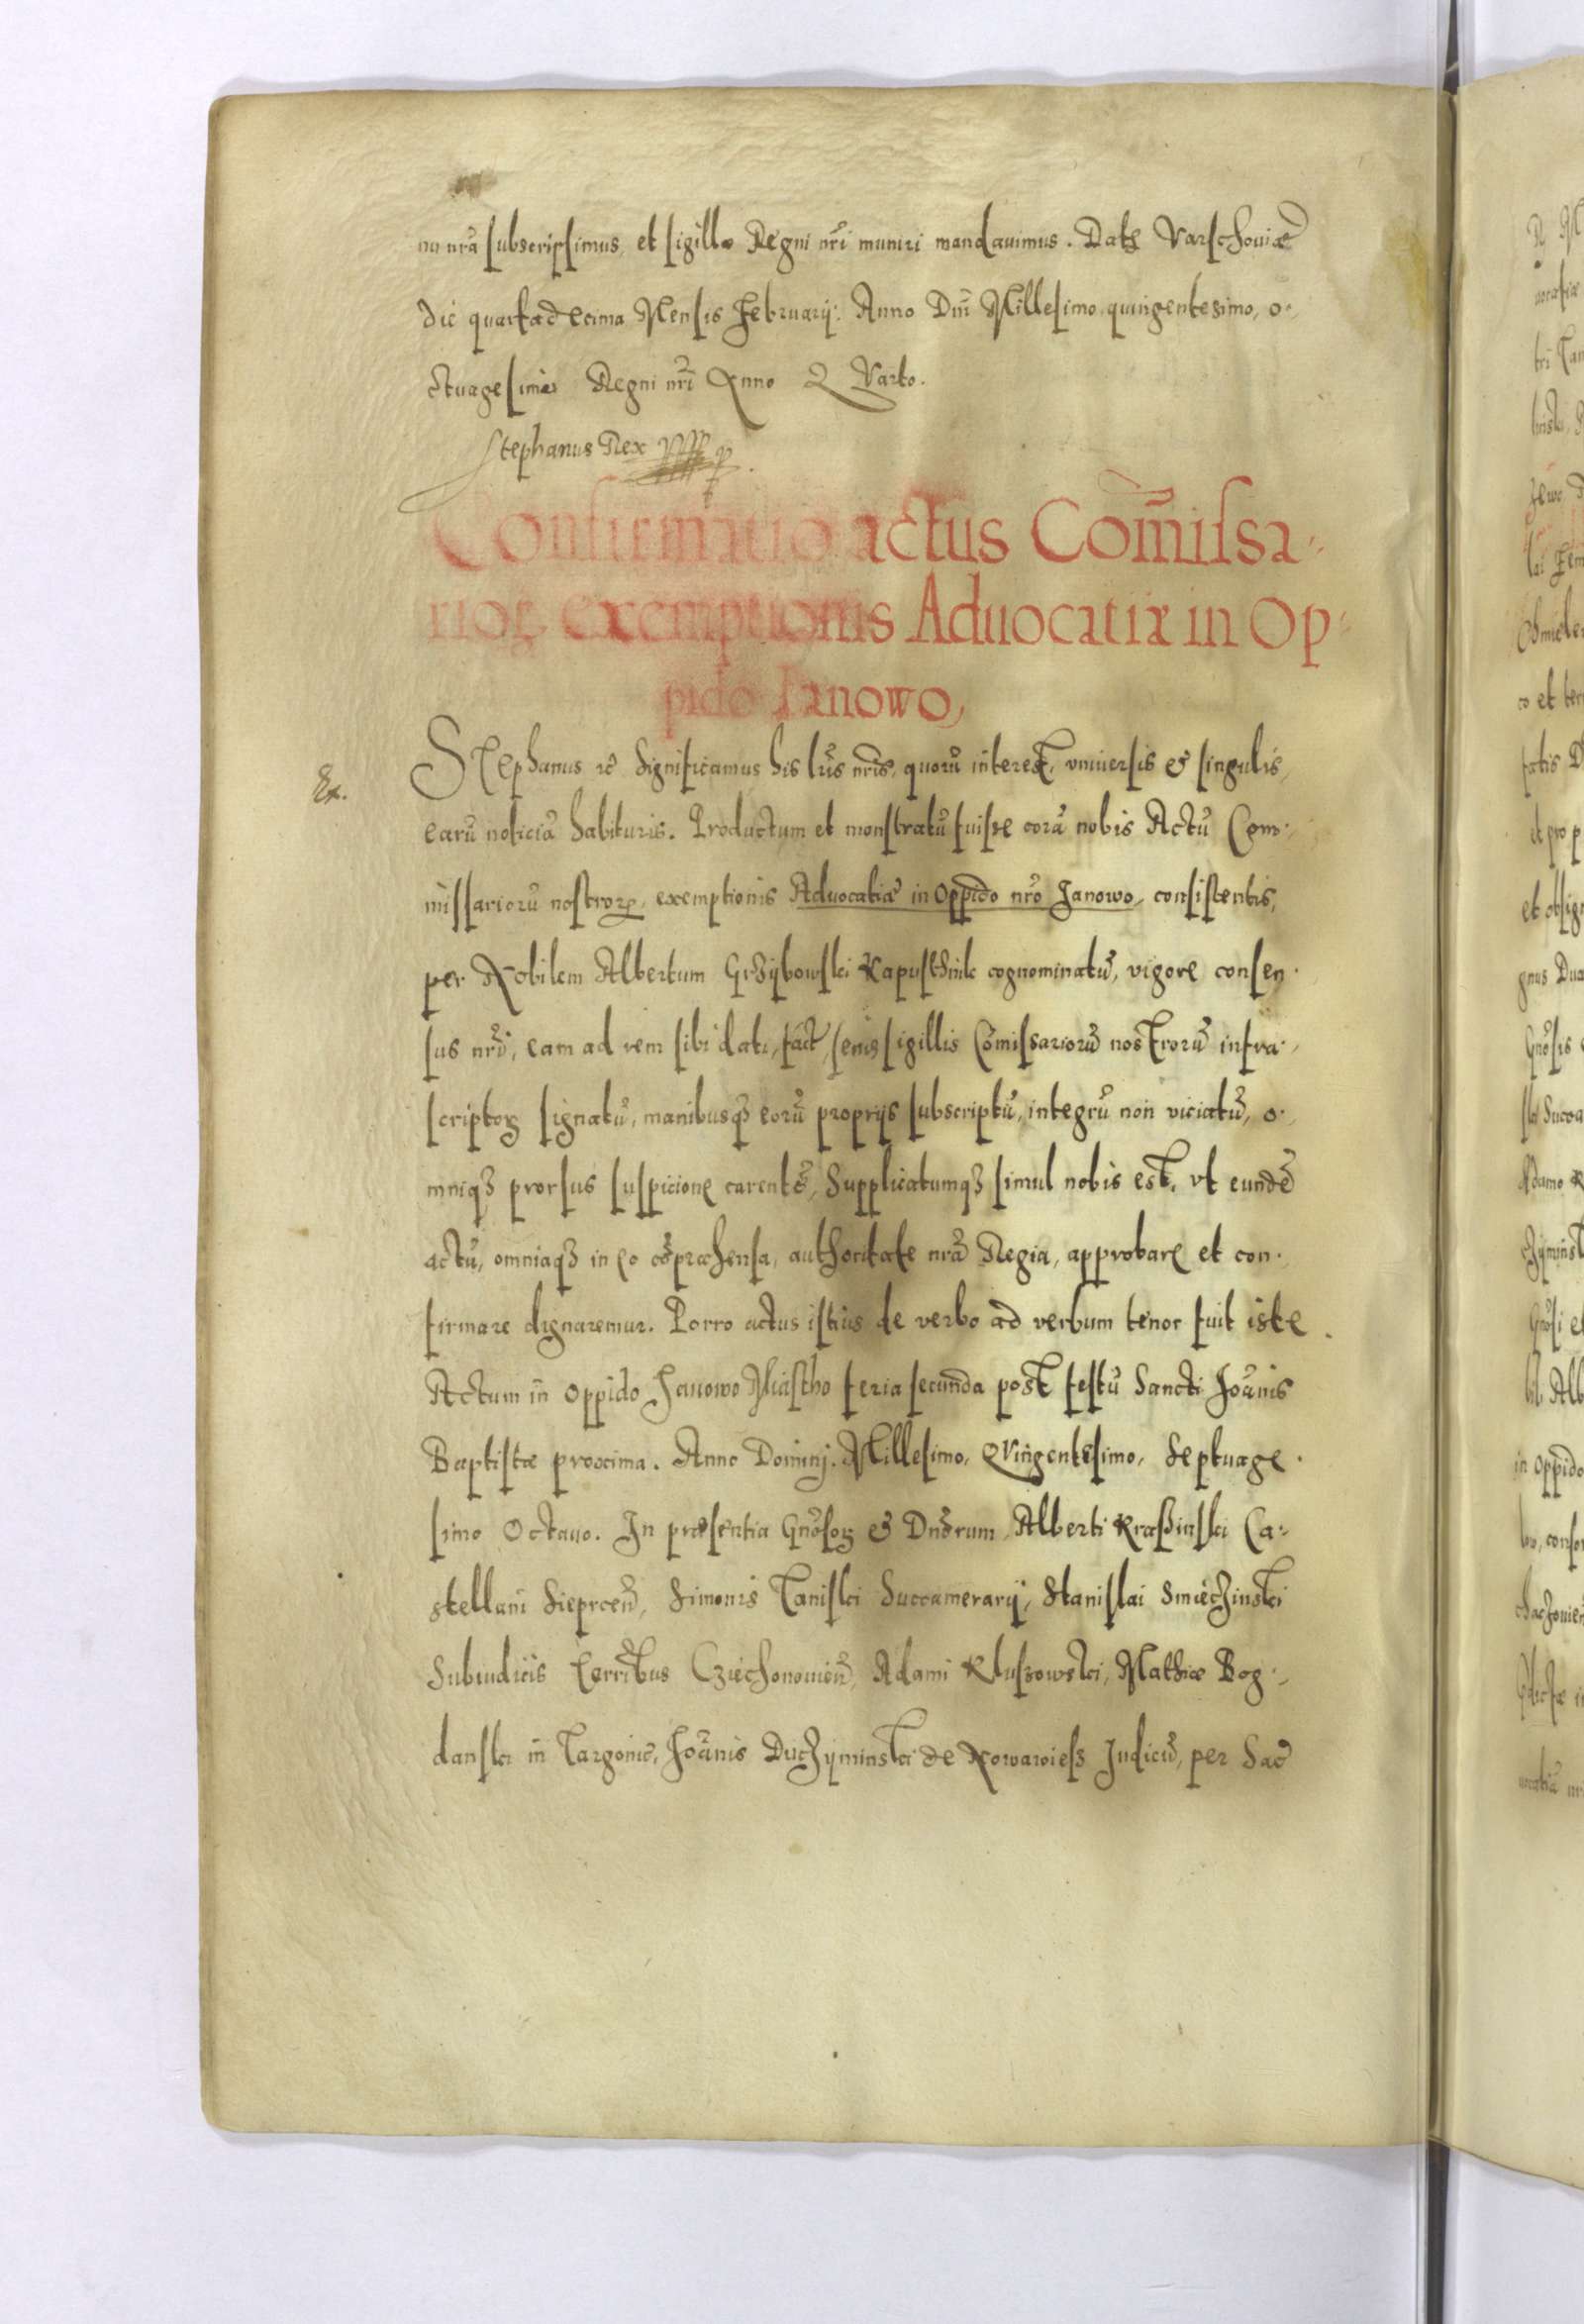 nu nrã subscripsimus, et sigillo Regni nrĩ muniri mandauimus. Datę Varschouiæ
die quartadecima Mensis Februarij. Anno Dnĩ Millesimo, quingentesimo, o-
ctuagesimo Regni nrĩ Anno QVarto.
Stephanus Rex
Confirmatio actus Com̃issa-
rioꝝ exemptionis Aduocatiæ in Op-
pido Ianowo,
Ex.
STephanus ꝛc̃ Significamus his lrĩs nrĩs, quorũ interest, vniuersis et singulis,
earũ noticiã habituris. Productum et monstratũ fuisse corã nobis Actũ Com-
missariorũ nostroꝝ, exemptionis Aduocatiæ in Oppido nrõ Janowo, consistentis,
per Nobilem Albertum Grzijbowski Kapusthnik cognominatũ, vigore consen-
sus nrĩ, eam ad rem sibi dati, fact, senis sigillis Com̃issariorũ nostrorũ infra-
scriptoꝝ signatũ, manibusqꝫ eorũ proprijs subscriptũ, integrũ non viciatũ, o-
mniqꝫ prorsus suspicione carentẽ, Supplicatumqꝫ simul nobis est, vt eundẽ
actũ, omniaqꝫ in eo cõpræhensa, authoritate nrã Regia, approbare et con-
firmare dignaremur. Porro actus istius de verbo ad verbum tenor fuit iste
Actum in Oppido Janowo Miastho feria secunda post festũ Sancti Joãnis
Baptistæ proxima. Anno Dominj. Millesimo, QVingentesimo, Septuage-
simo Octauo. In præsentia Gnõsoꝝ et Dnõrum, Alberti Kraßinski Ca-
stellani Sieprceñ, Simonis Taniski Succamerarij, Stanislai Smieczinski
Subiudicis Terrĩbus Cziechonouieñ, Adami Kluszowski, Mathiæ Bog-
danski in Targonie, Joãnis Duczijminski de Nowawieß Judicũ, per Sac̃